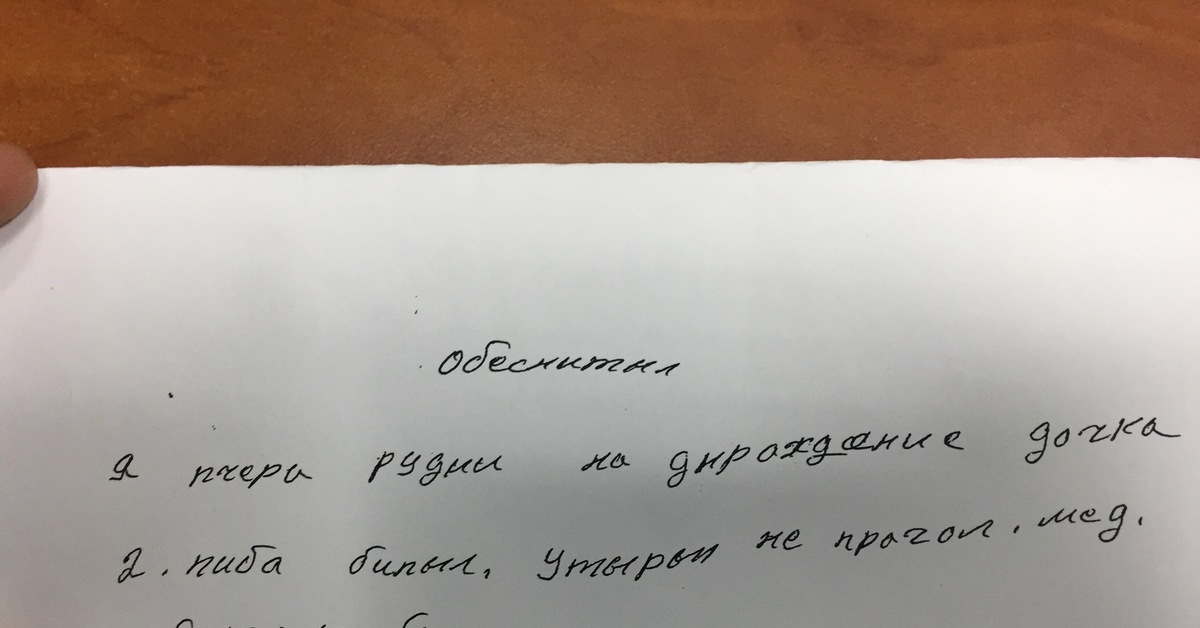 Обеснитыл
Я пчера рудни на днрождание дочка
2. пиба бипыл, Утыром не прагол. мед.